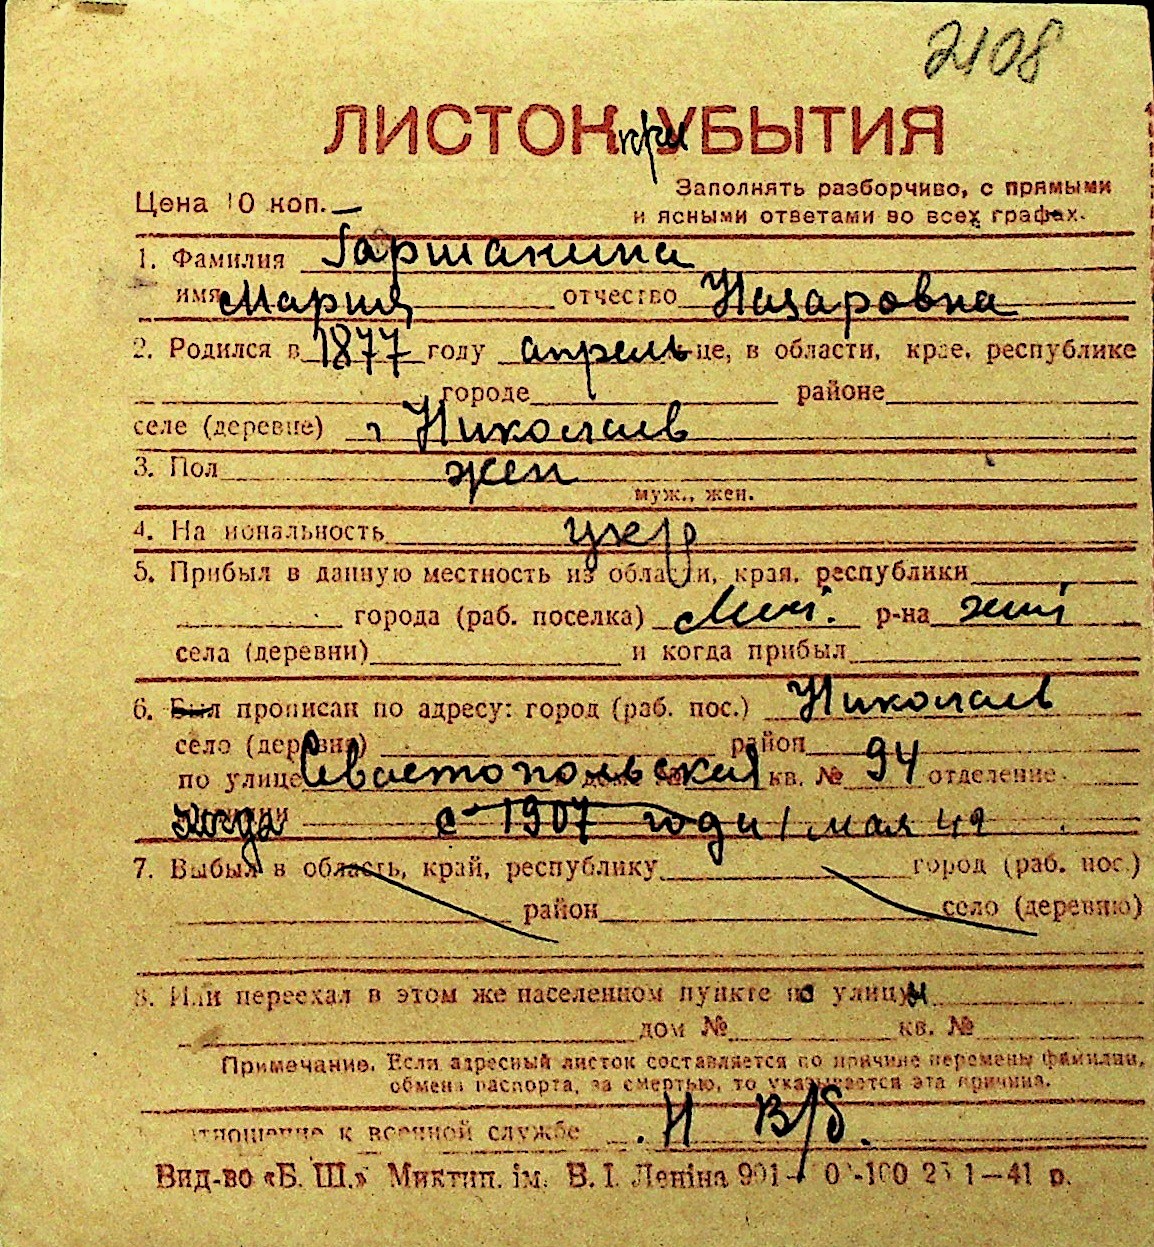 2108
ЛИСТОК при УБЫТИЯ
Цена 10 коп.
Заполнять разборчиво, с прямыми
и ясными ответами во всех графах.
1. Фамилия Гаршанина
имя Мария отчество Назаровна
2. Родился в 1877 году апрель це, в области, крае, республике
городе районе
селе (деревне) г Николаев
3. Пол жен
муж., жен.
4. На иональность укр
5. Прибыл в данную местность из области, края, республики
города (раб. поселка) р-на
села (деревни) и когда прибыл
6. Был прописан по адресу: город (раб. пос.) Николаев
село (деревня) район
по улице Севастопольская доме № кв. № 94 отделение
когда с 1907 года 1 мая 42
7. Выбыл в область, край, республику город (раб. пос.)
район село (деревню)
8. Или переехал в этом же населенном пункте по улицы
дом № кв. №
Примечание. Если адресный листок составляется по причине перемены фамилии,
обмена паспорта, за смертью, то указывается эта причина.
отношение к военной службе Н В/б.
Вид-во «Б. Ш.» Миктип. ім. В. І. Леніна 991 25 1—41 р.